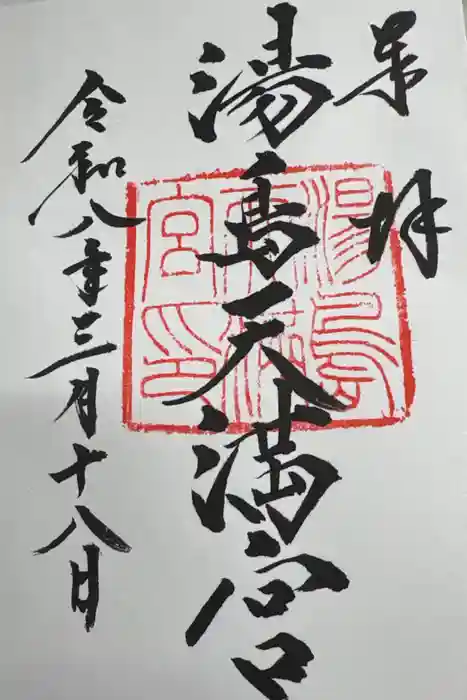 奉拝
湯島天満宮
令和八年三月十八日
湯島
天満
宮印